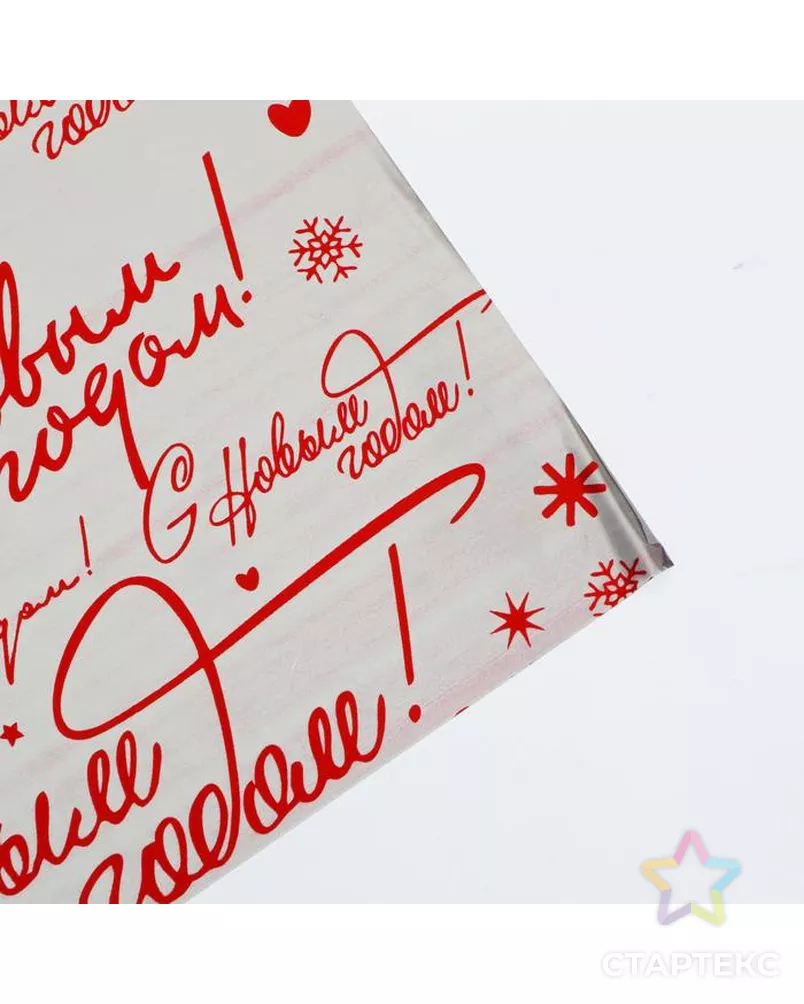 годом!
овым
годом!
С Новым
годом!
годом!
овым
годом!
СТАРТЕКС